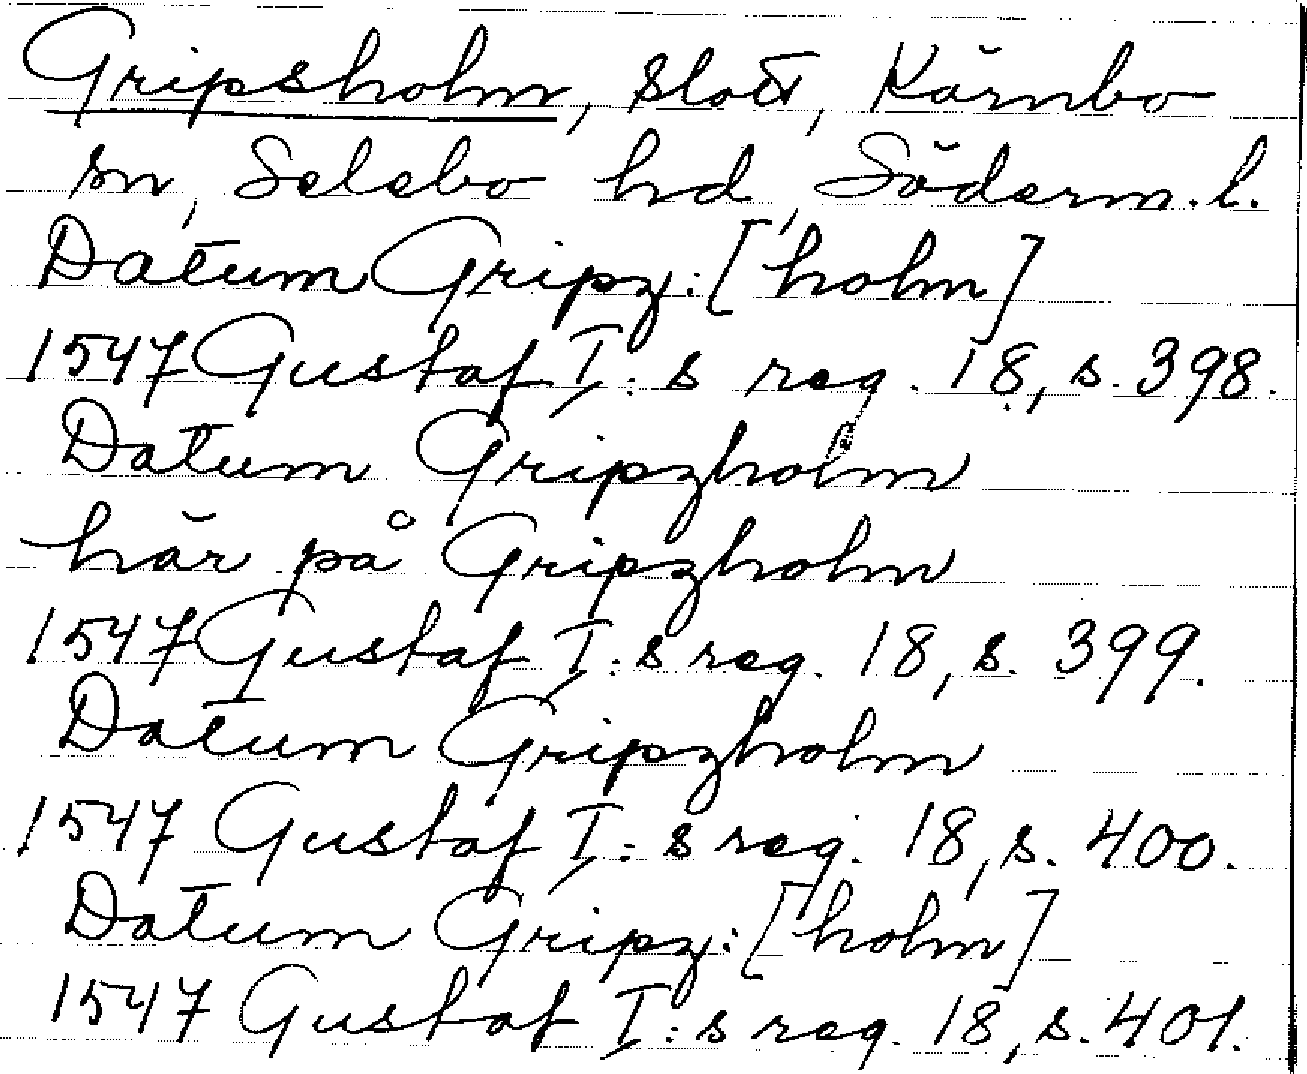 Gripsholm, slott, Kärnbo
sn, Selebo hd, Söderm. l.
Datum Gripz: [holm]
1547 Gustaf I:s reg. 18, s. 398.
Datum Gripzholm
här på Gripzholm
1547 Gustaf I:s reg. 18, s. 399.
Datum Gripzholm
1547 Gustaf I:s reg. 18, s. 400.
Datum Gripz: [holm]
1547 Gustaf I:s reg. 18, s. 401.